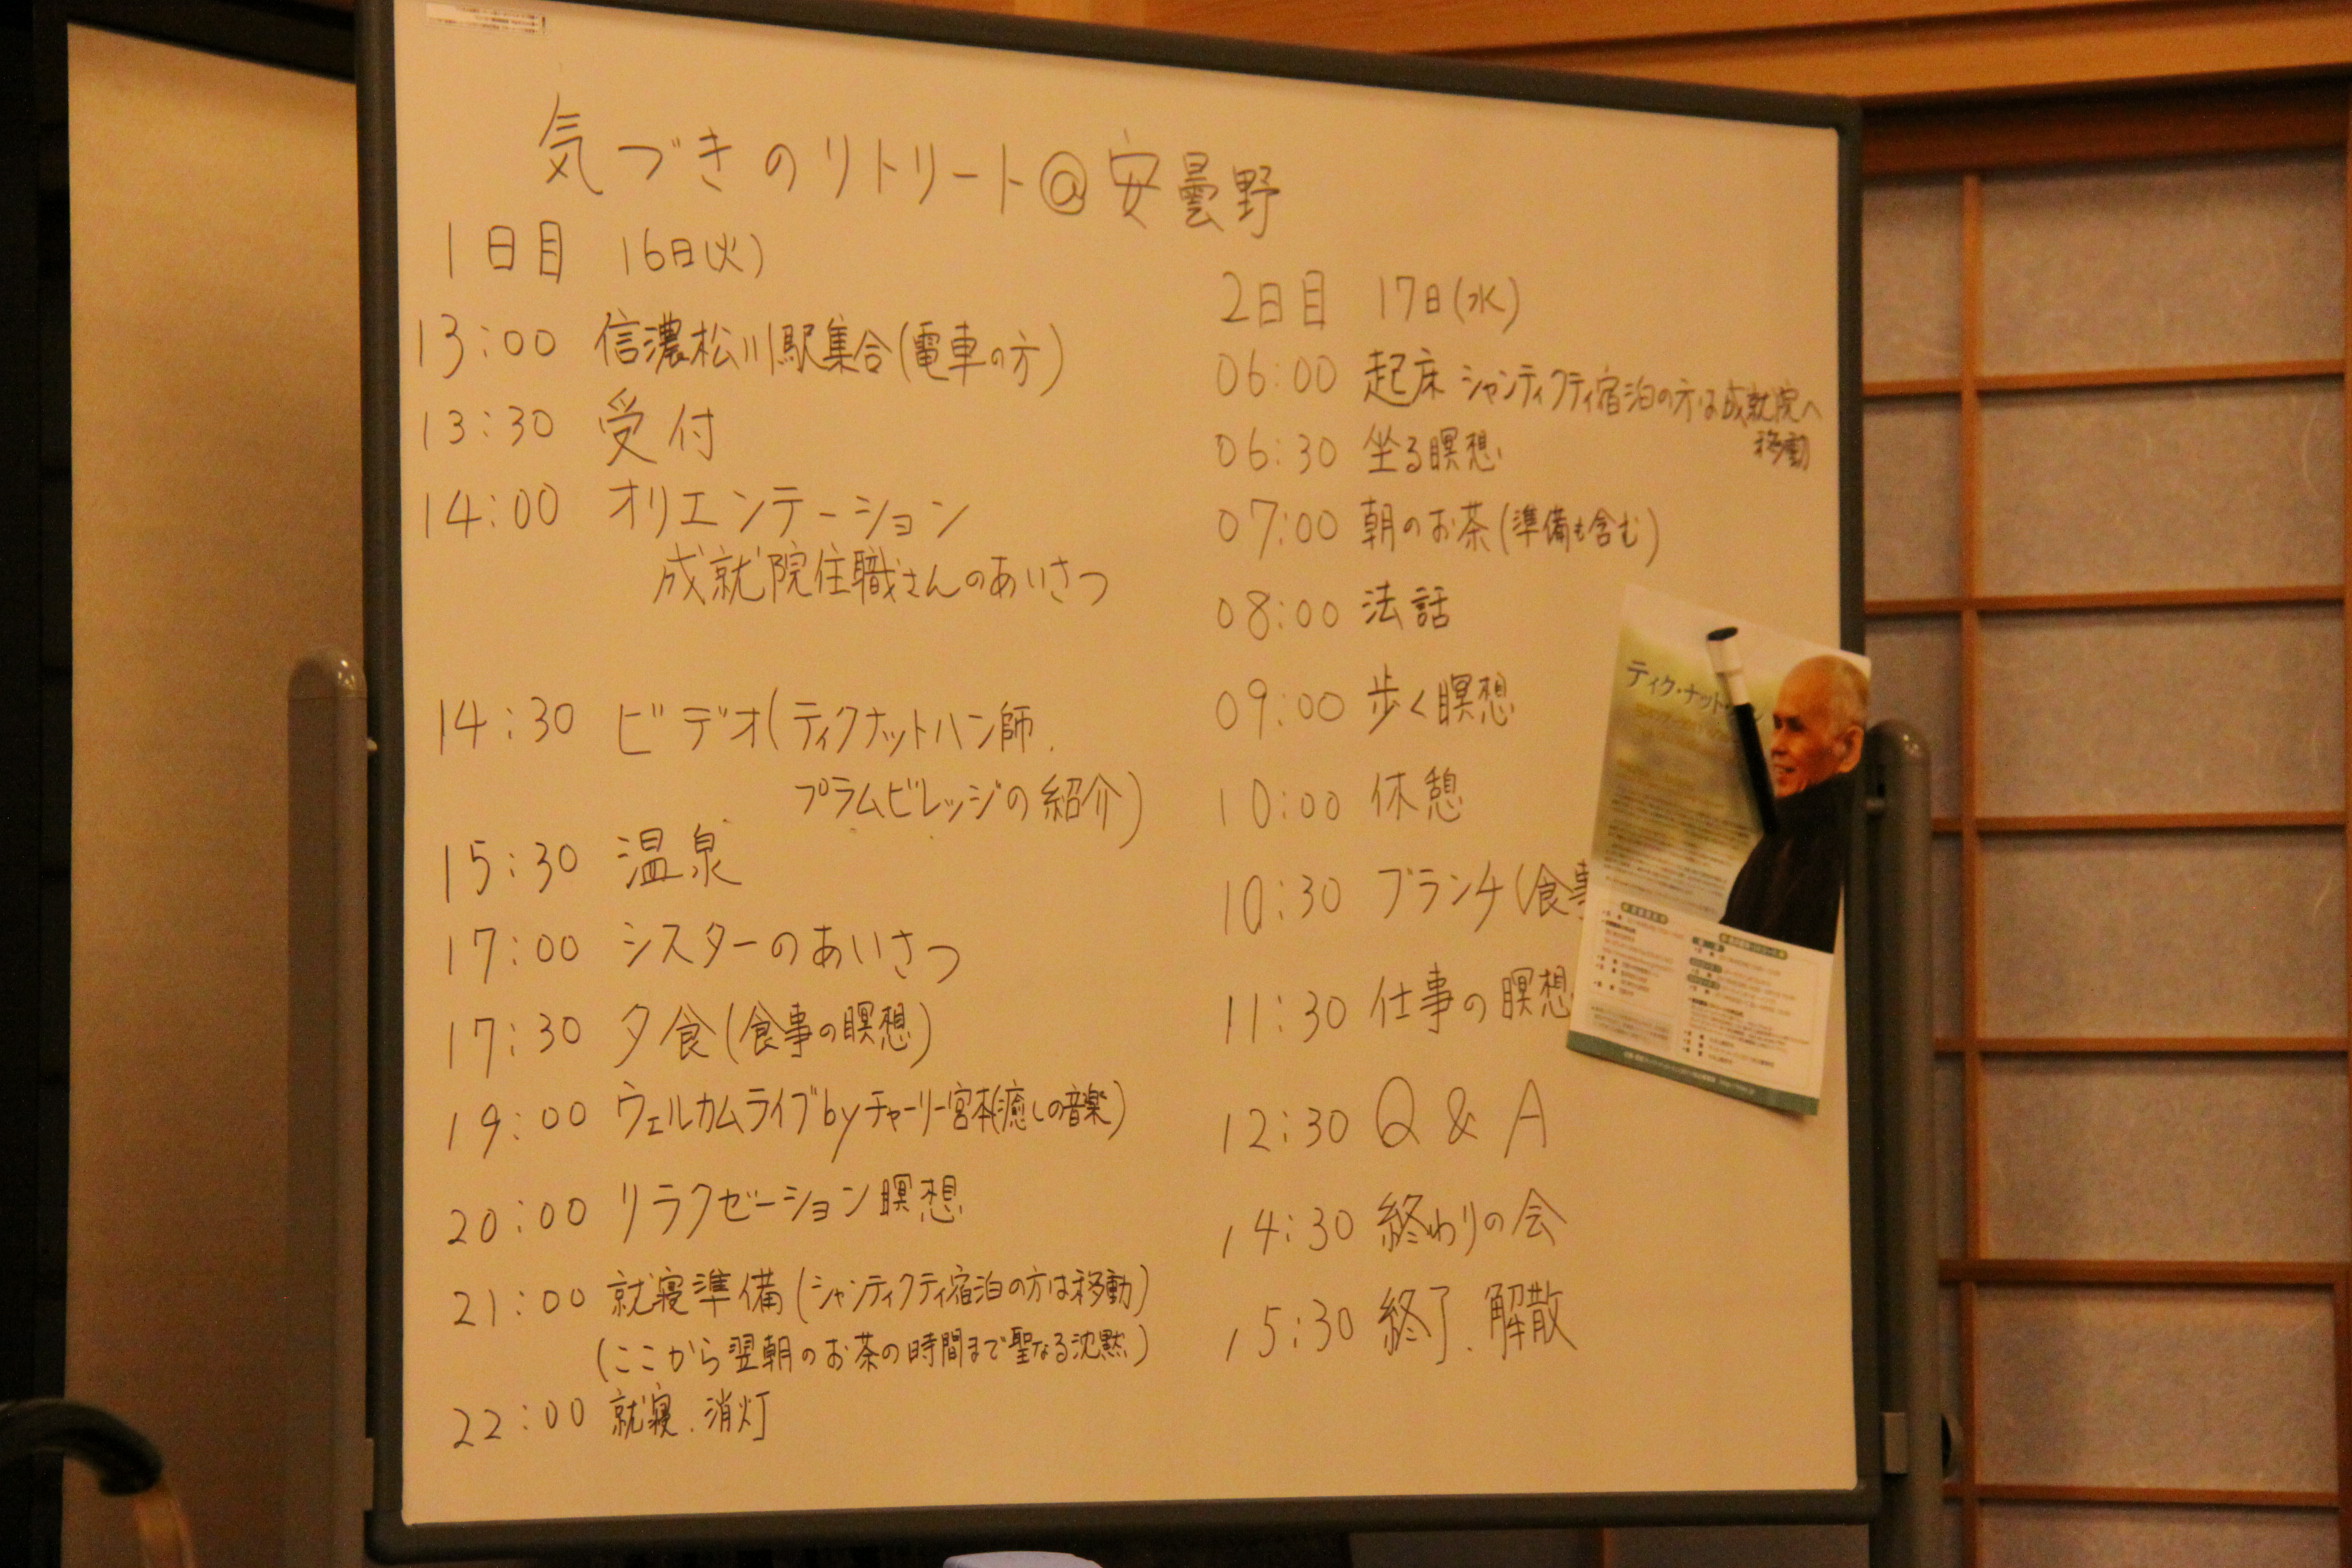 気づきのリトリート@安曇野
1日目 16日(火)
13:00 信濃松川駅集合(電車の方)
13:30 受付
14:00 オリエンテーション
成就院住職さんのあいさつ
14:30 ビデオ(ティクナットハン師.
プラムビレッジの紹介)
15:30 温泉
17:00 シスターのあいさつ
17:30 夕食(食事の瞑想)
19:00 ウェルカムライブbyチャーリー宮本(癒しの音楽)
20:00 リラクゼーション瞑想
21:00 就寝準備(シャンティクティ宿泊の方は移動)
(ここから翌朝のお茶の時間まで聖なる沈黙)
22:00 就寝.消灯
2日目 17日(水)
06:00 起床 シャンティクティ宿泊の方は成就院へ
移動
06:30 坐る瞑想
07:00 朝のお茶(準備も含む)
08:00 法話
09:00 歩く瞑想
10:00 休憩
10:30 ブランチ(食事
11:30 仕事の瞑想
12:30 Q & A
14:30 終わりの会
15:30 終了.解散
ティク・ナット・